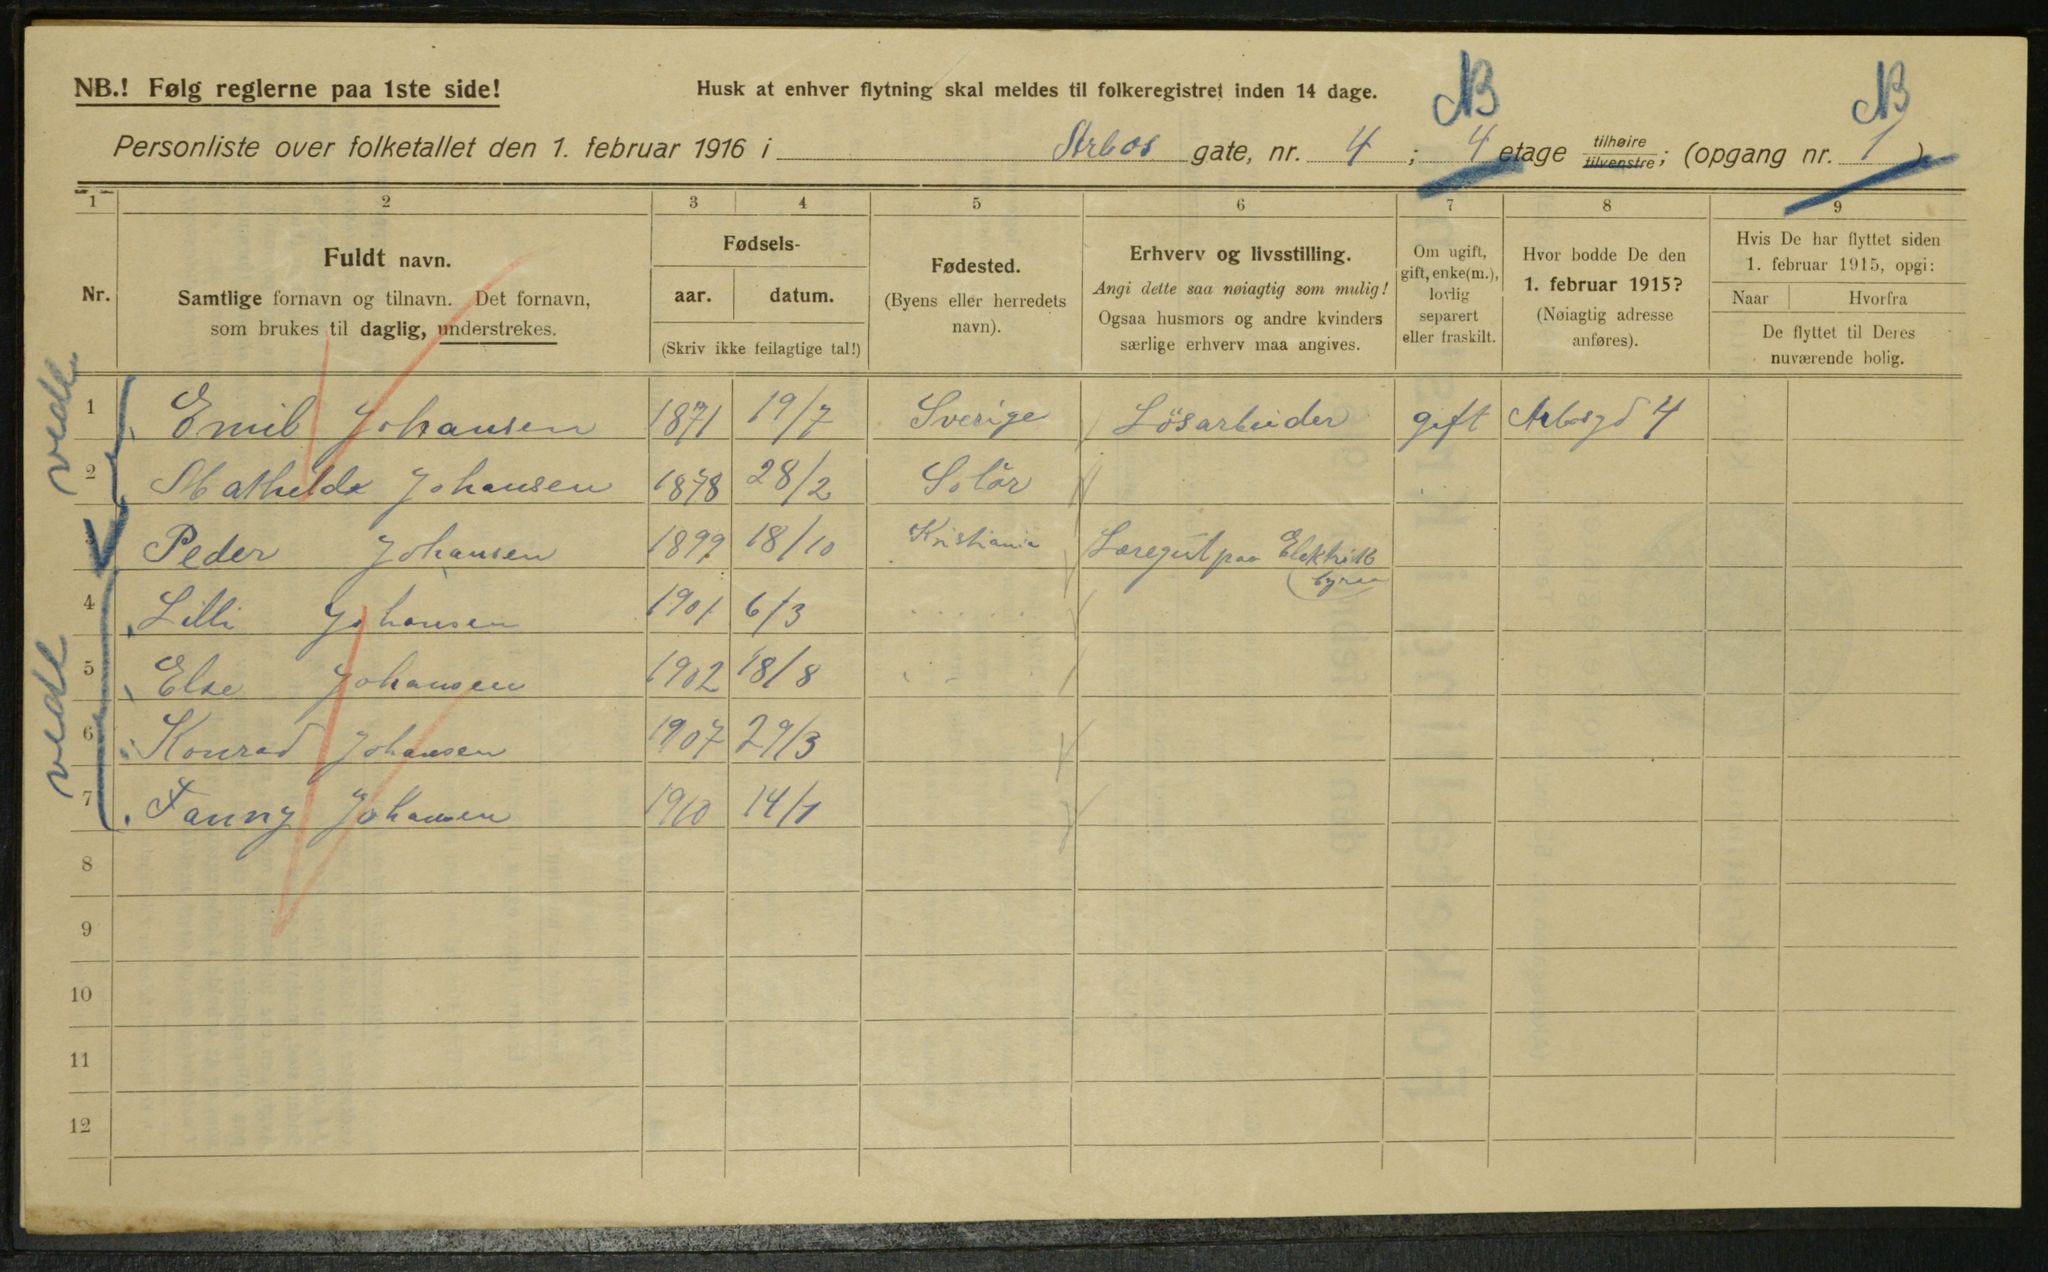 NB.! Følg reglerne paa 1ste side!
Husk at enhver flytning skal meldes til folkeregistret inden 14 dage.
NB
NB
Personliste over folketallet den 1. februar 1916 i Arbos gate, nr. 4 ; 4 etage tilhøire tilvenstre; (opgang nr. 1 )
1 2 3 4 5 6 7 8 9
Nr.
Fuldt navn.
Samtlige fornavn og tilnavn. Det fornavn,
som brukes til daglig, understrekes.
Fødsels-
aar. datum.
(Skriv ikke feilagtige tal!)
Fødested.
(Byens eller herredets
navn).
Erhverv og livsstilling.
Angi dette saa nøiagtig som mulig!
Ogsaa husmors og andre kvinders
særlige erhverv maa angives.
Om ugift,
gift, enke(m.),
lovlig
separert
eller fraskilt.
Hvor bodde De den
1. februar 1915?
(Nøiagtig adresse
anføres).
Hvis De har flyttet siden
1. februar 1915, opgi:
Naar Hvorfra
De flyttet til Deres
nuværende bolig.
vedl
1 Emil Johansen 1871 19/7 Sverige Lösarbeider gift Arbosgd 4
2 Mathilde Johansen 1878 28/2 Solör
3 Peder Johansen 1899 18/10 Kristiania Læregut paa Elektrisk
byraa
4 Lilli Johansen 1901 6/3
vedl
5 Else Johansen 1902 18/8
6 Konrad Johansen 1907 29/3
7 Fanny Johansen 1910 14/1
8
9
10
11
12